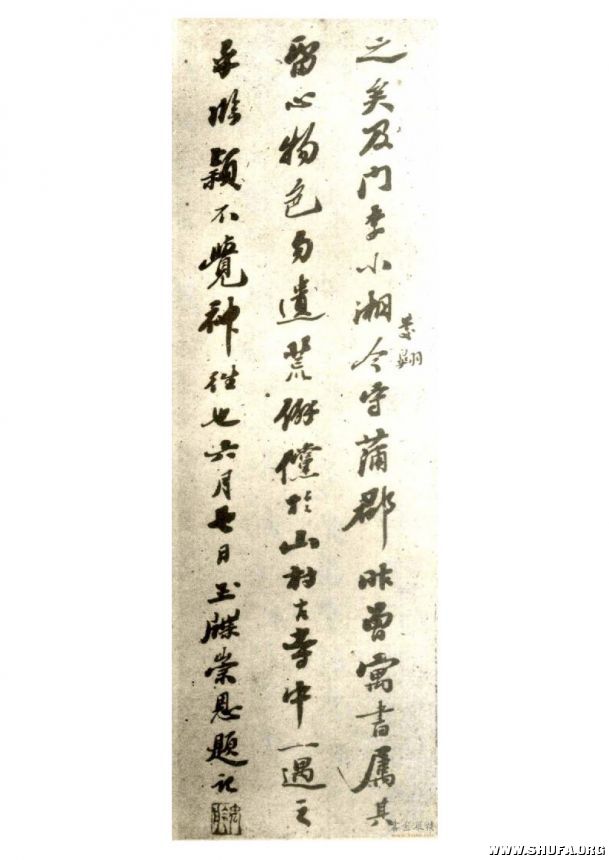 之矣及門李小湘今守蒲郡昨曾寓書屬其
翔
留心物色勿遺荒僻儻於山村古寺中一遇之
乎臨穎不覺神往也六月日玉牒崇恩題記
WWW.SHUFA.ORG